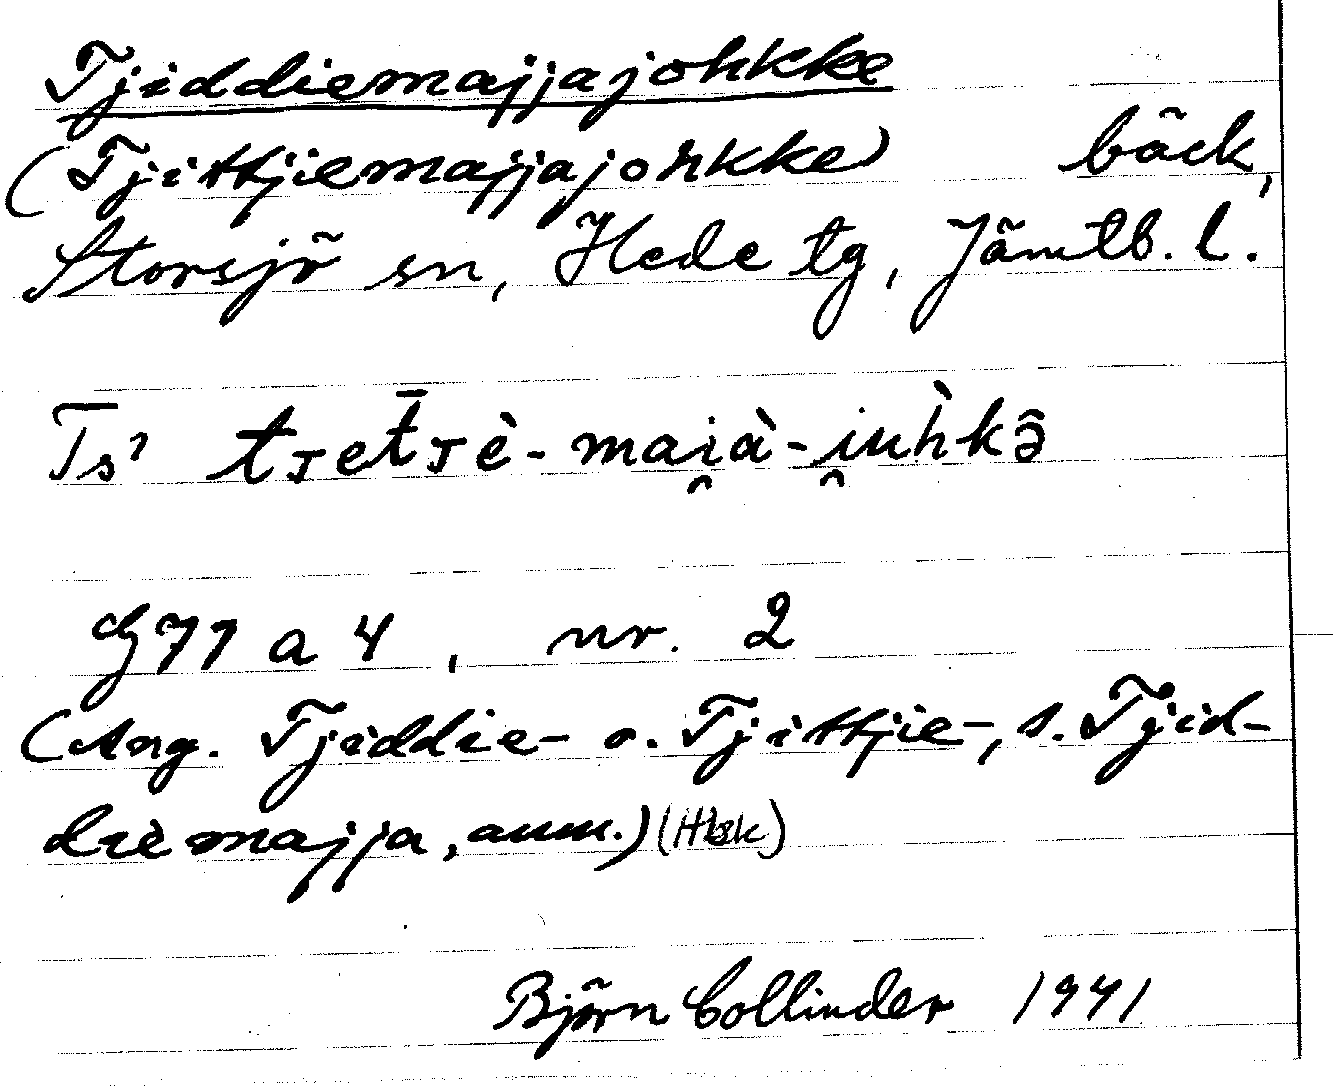 Tjiddiemajjajohkke
(Tjittjiemajjajohkke) bäck,
Storsjö sn, Hede tg, Jämtl. l.
Ts?
G 77 a 4, nr. 2
(Ang. Tjiddie- o. Tjittjie-, s. Tjid-
diemajja, anm.)
Björn Collinder 1941